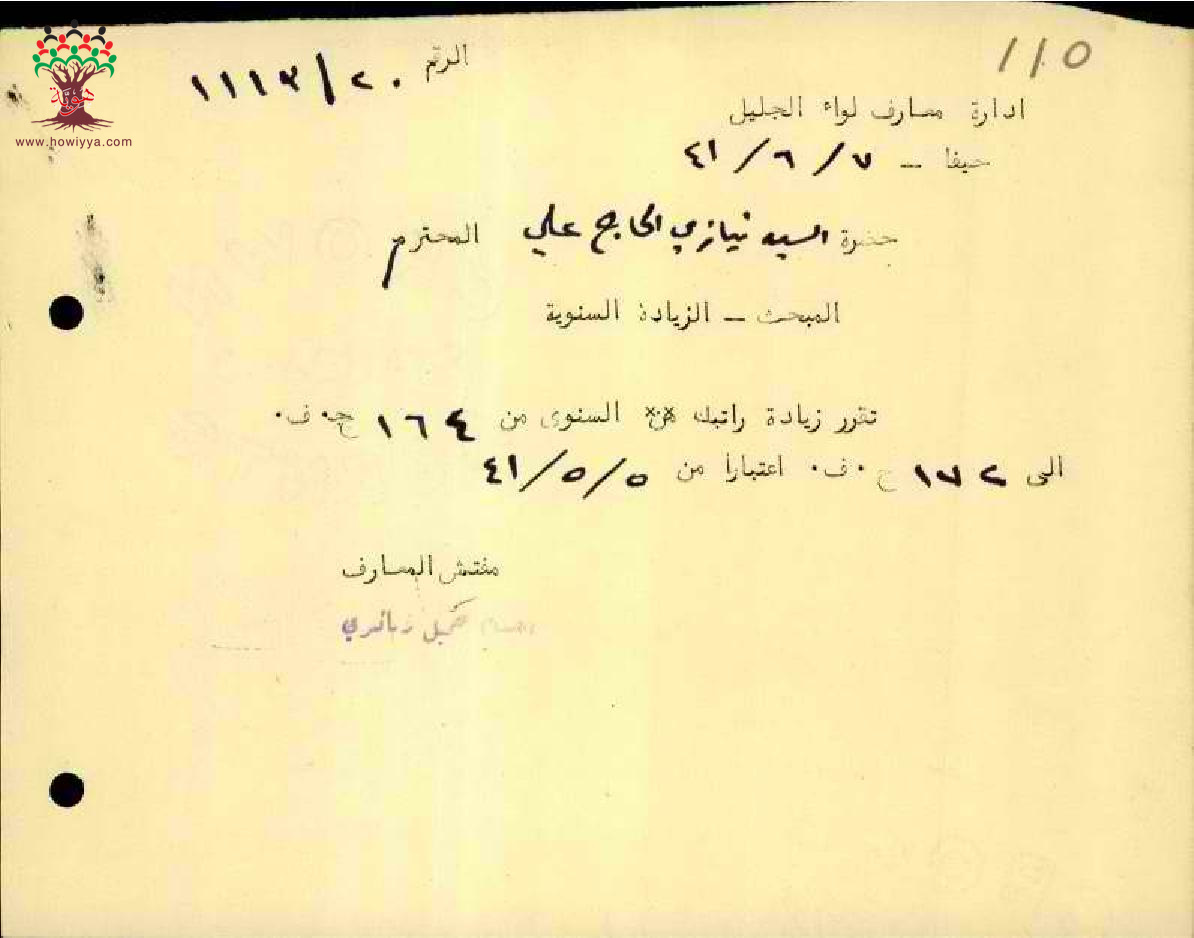 ١١٥
الرقم ٢٠/١١١٣
www.howiyya.com
ادارة معارف لواء الجليل
حيفا – ٧/٦/٤١
حضرة السيد نيازي الحاج علي المحترم
المبحث – الزيادة السنوية
تقرر زيادة راتبك السنوى من ١٦٤ ج٠ ف٠
الى ١٧٢ ج٠ ف٠ اعتبارا من ٥/٥/٤١
مفتش المعارف